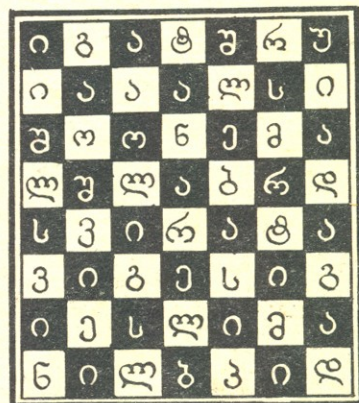 ი გ ა ტ შ რ უ
ი ა ა ა ლ ს ი
შ ო ო ნ ე მ ა
ლ შ ლ ა ბ რ დ
ს ვ ი რ ა ტ ა
ვ ი გ ე ს ი გ
ი ე ს ლ ი მ ა
ნ ი ლ ბ პ ი დ